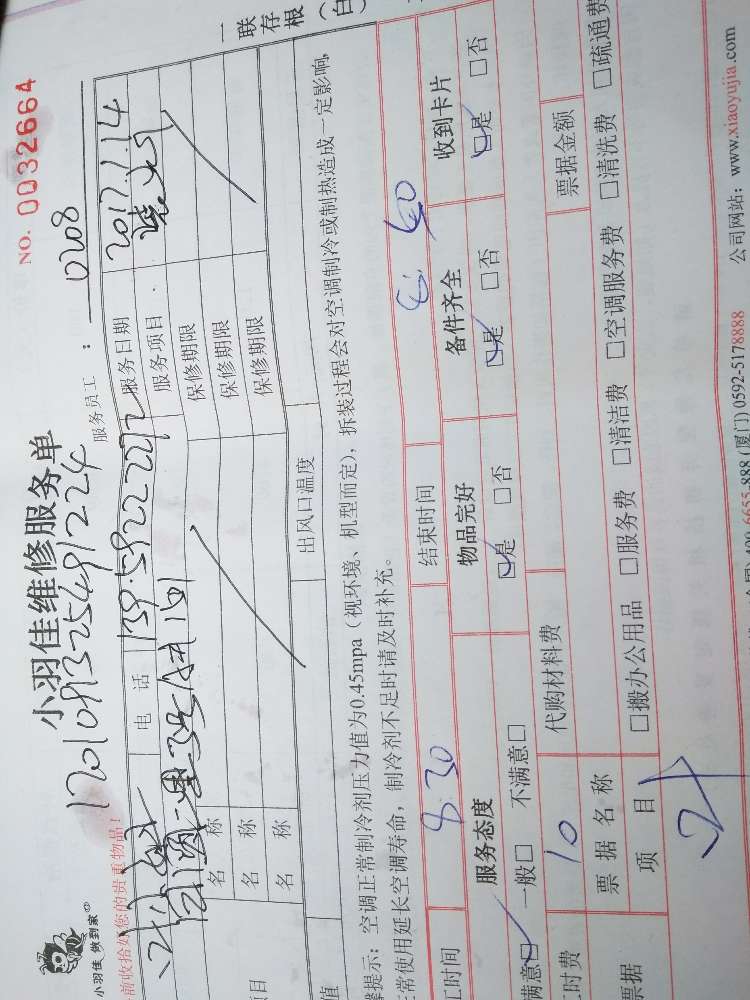 小羽佳 做到家
小羽佳维修服务单
NO. 0032664
一联存根(白
1201091325491224
前收拾好您的贵重物品!
服务员工: 0208
电话 139.5922
服务日期 2017.1.14
服务项目
名称 保修期限
名称 保修期限
名称 保修期限
项目
值 出风口温度
骤提示:空调正常制冷剂压力值为0.45mpa(视环境、机型而定),拆装过程会对空调制冷或制热造成一定影响,
正常使用延长空调寿命,制冷剂不足时请及时补充。
工时间 8:30 结束时间 :40
服务态度 物品完好 备件齐全 收到卡片
满意☑ 一般□ 不满意□ ☑是 □否 ☑是 □否 ☑是 □否
工时费 10 代购材料费
票据名称 票据金额
票据项目 □搬办公用品 □服务费 □清洁费 □空调服务费 □清洗费 □疏通费
-888(厦门)0592-5178888 公司网站:www.xiaoyujia.com